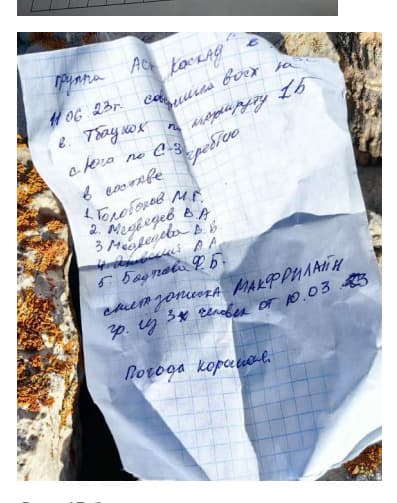 группа АСК "Каскад" в
11.06.23г. совершила восх на
в. Тбаухох по маршруту 1Б
с Юга по С-З гребню
в составе
1. Голобоков М.Г.
2. Медведев В.А.
3 Медведева В.
4. А.А.
5. Ф.Б.
снята записка МАКФРИЛАЙН
гр. из 3х человек от 10.03.23
Погода хорошая.